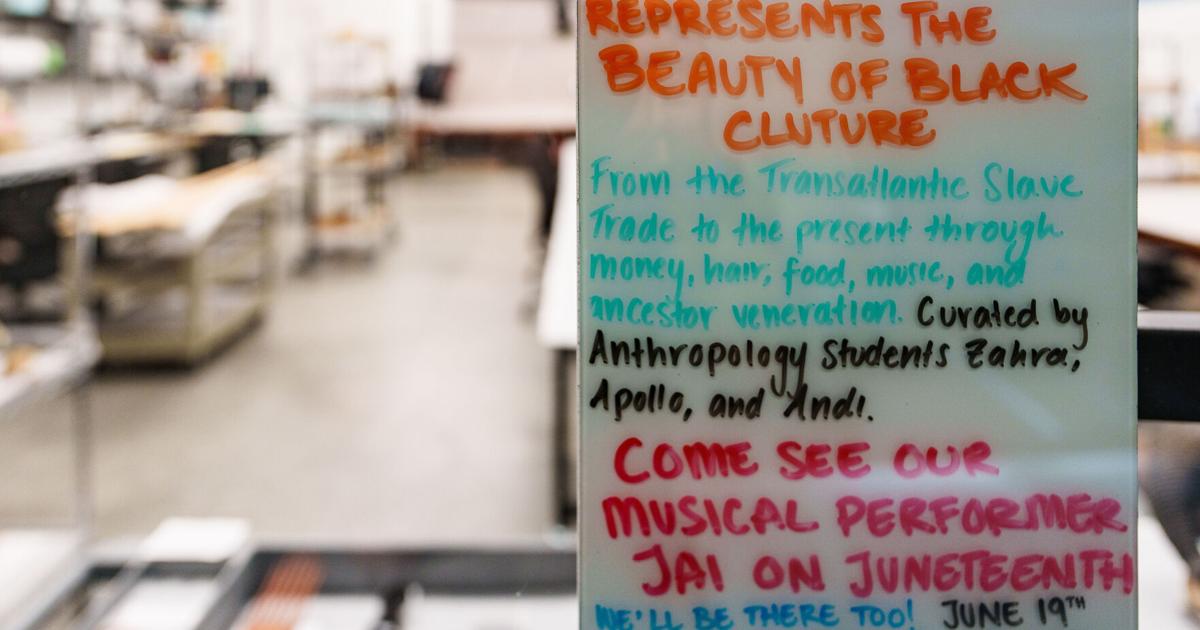 REPRESENTS THE
BEAUTY OF BLACK
CLUTURE
From the Transatlantic Slave
Trade to the present through
money, hair, food, music, and
ancestor veneration. Curated by
Anthropology Students Zahra,
Apollo, and Andi.
COME SEE OUR
MUSICAL PERFORMER
JAI ON JUNETEENTH
WE'LL BE THERE TOO! JUNE 19TH